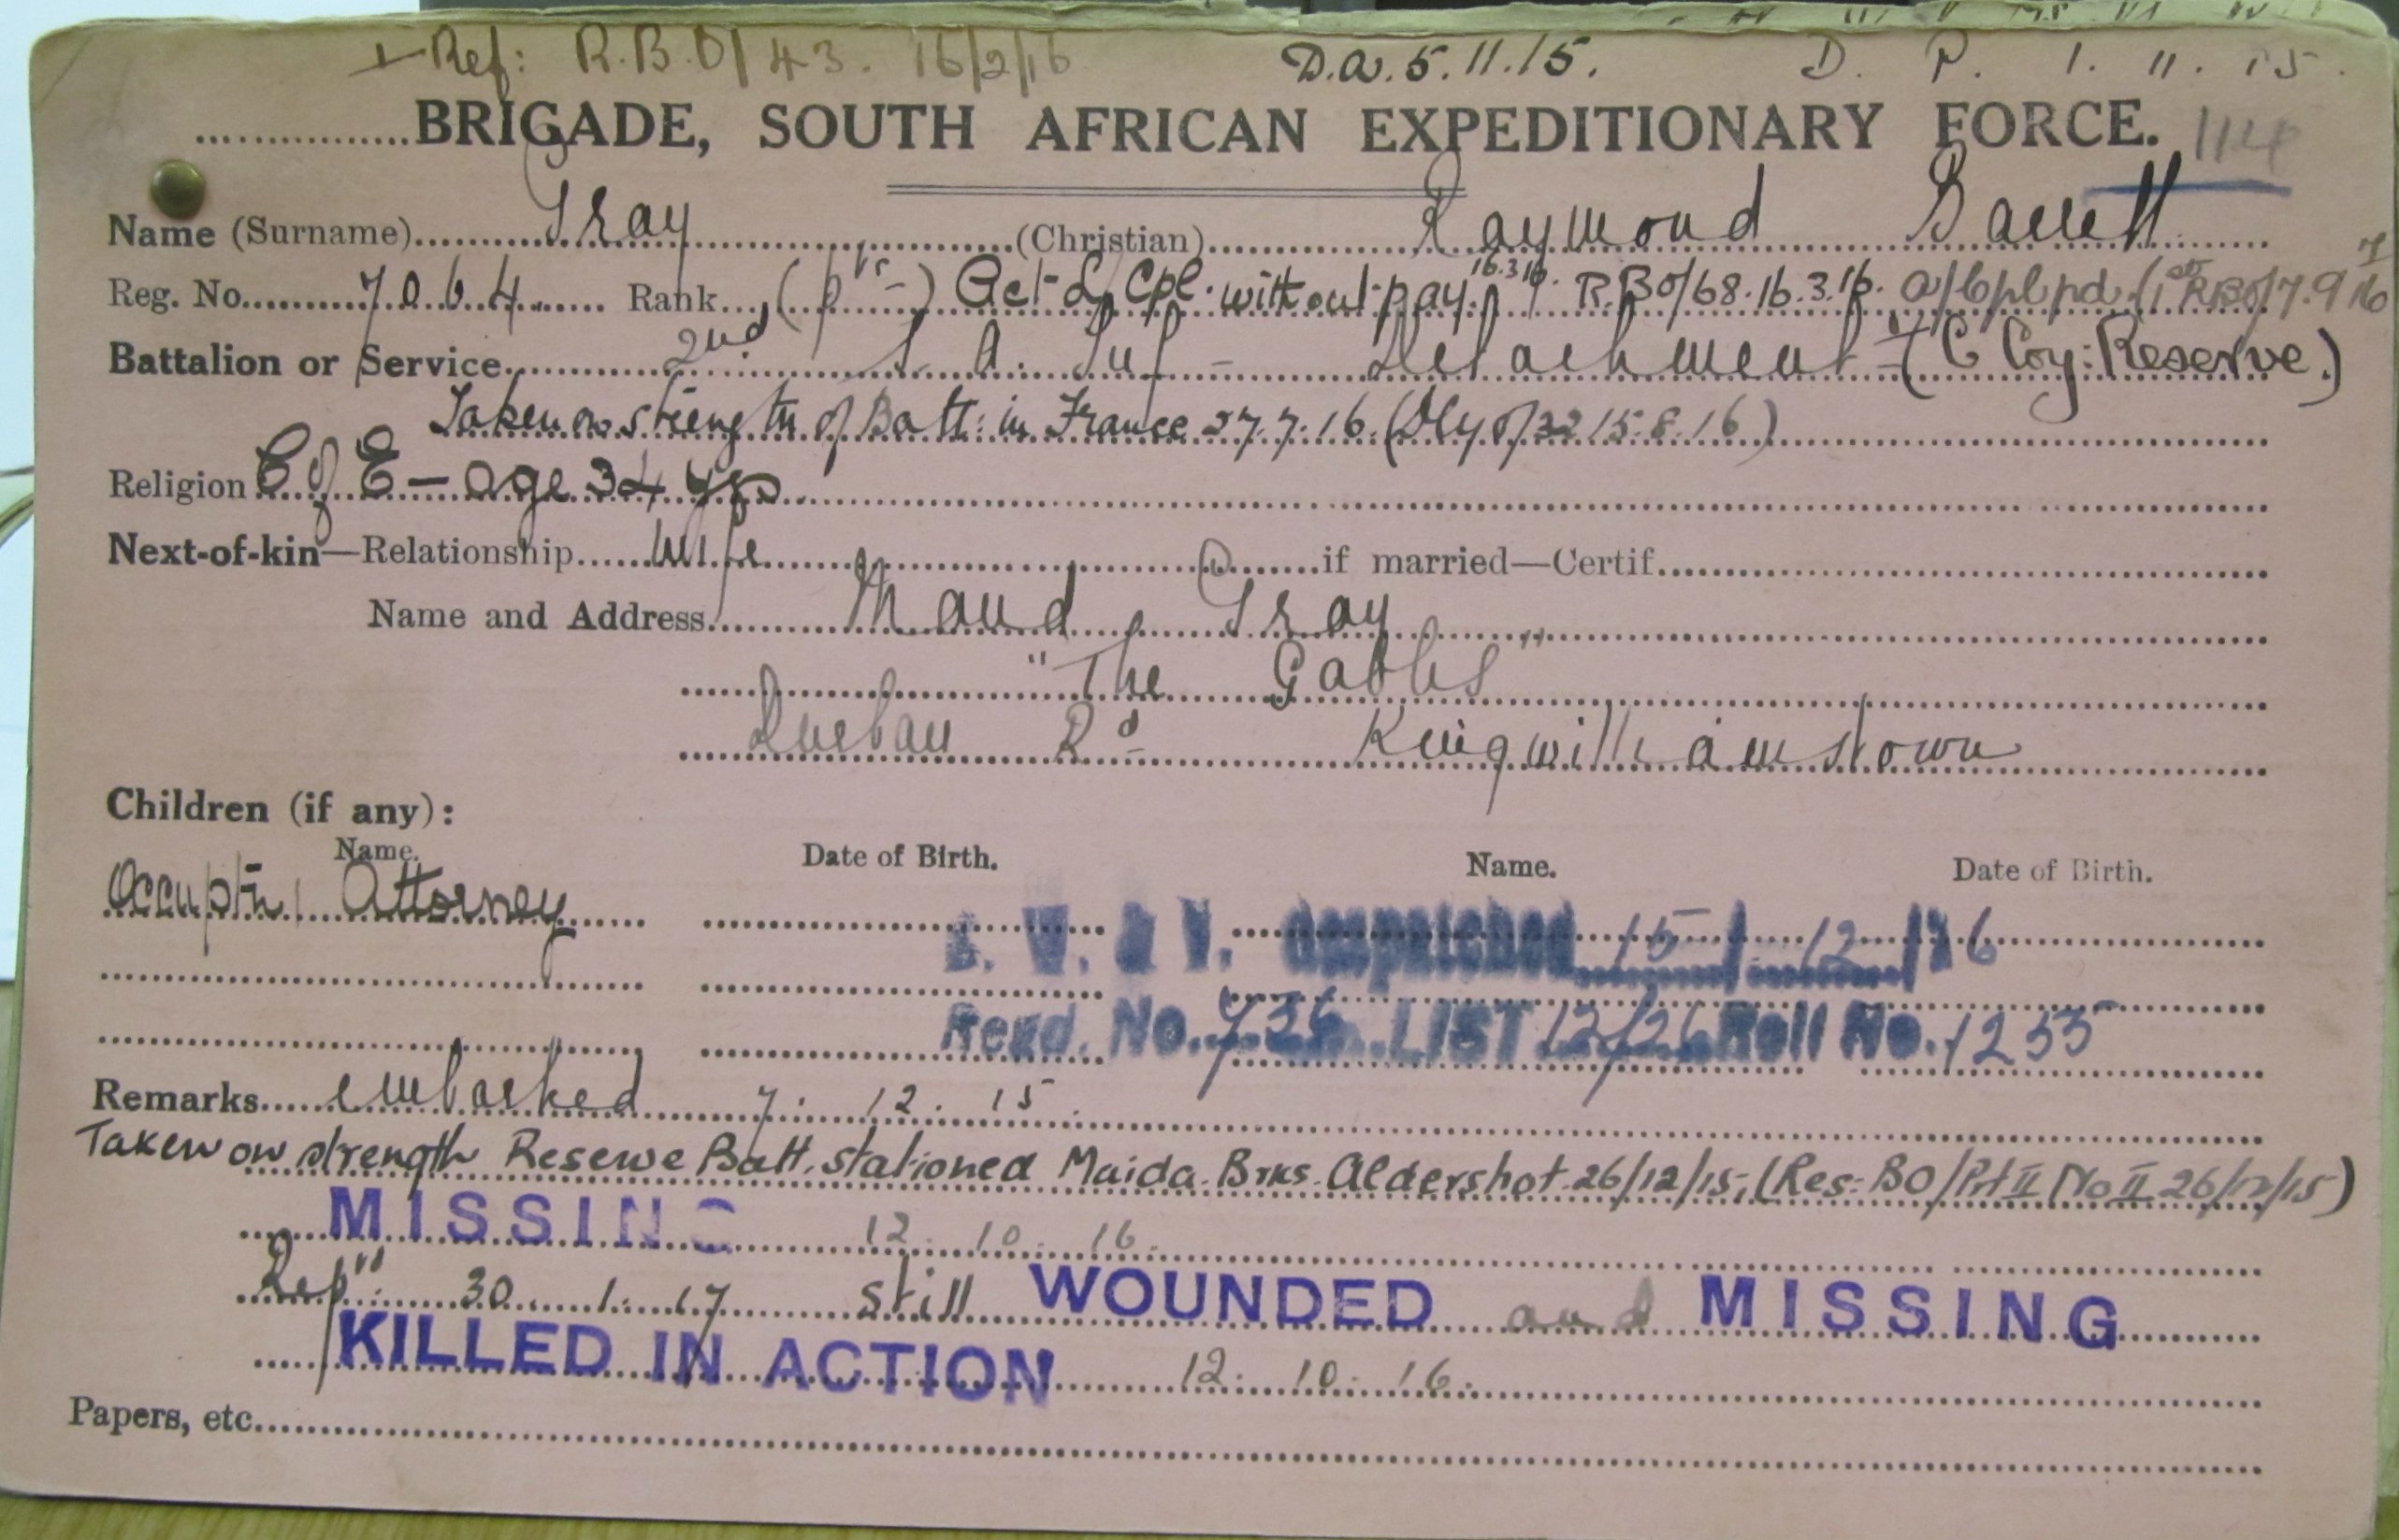 Ref: R.B.O/43. 16/2/16 D.A. 5.11.15. D. P. 1. 11. 15.
BRIGADE, SOUTH AFRICAN EXPEDITIONARY FORCE. 114
Name (Surname) Gray (Christian) Raymond Barrett
Reg. No. 7064 Rank (Pte) Act L/Cpl. without pay. 16.3.16. R.BO/68.16.3.16. a/Cpl pd.
Battalion or Service 2nd S. A. Inf - Detachment - (C Coy: Reserve.)
Taken on strength of Batt: in France 27.7.16. (Dly O/32 15.8.16)
Religion C of E — age 34 yrs
Next-of-kin—Relationship Wife if married—Certif.
Name and Address Maud Gray
"The Gables"
Durban Rd Kingwilliamstown
Children (if any):
Name. Date of Birth. Name. Date of Birth.
Occuptn, Attorney
W. & V. despatched 15/12/16
No. 736 LIST 12/26 Roll No. 1255
Remarks embarked 7. 12. 15.
Taken on strength Reserve Batt. stationed Maida Brks Aldershot 26/12/15, (Res: BO/Prt II No II 26/12/15)
MISSING 12. 10. 16.
Rep'd 30. 1. 17 still WOUNDED and MISSING
KILLED IN ACTION 12. 10. 16.
Papers, etc.